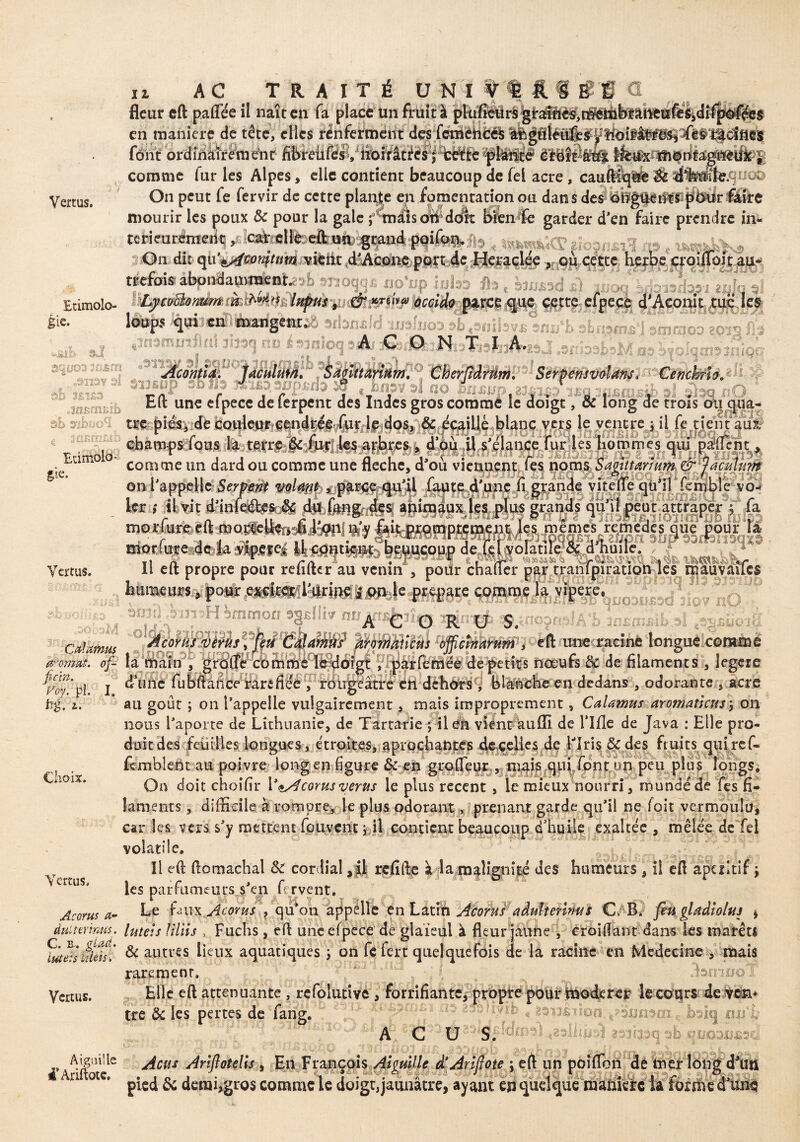 12 AC TRAITÉ UNIVERSEL
fleur est passée il naît en sa place un fruit à plusieurs graines, membraneuses, disposées
en maniere de tête, elles renferment des semences anguleuses, noirâtres, ses racines
sont ordinairement fibreuses, noirâtres; cette plante croît aux lieux montagneux;
comme sur les Alpes, elle contient beaucoup de sel acre, caustique & d'huile.
Vertus.
On peut se servir de cette plante en fomentation ou dans des onguents pour faire
mourir les poux & pour la gale; mais on doit bien se garder d'en faire prendre in-
terieurement, car elle est un grand poison.
On dit qu'Aconitum vient d'Acone port de Heraclée, où cette herbe croissoit au-
trefois abondamment.
Etimolo-
gie.
Lycoctonum à lupus, & occido parce que cette espece d'Aconit tue les
loups qui en mangent.
ACONTIA.
Acontia. Jaculum. Sagittarium. Chersidrum. Serpens volans. Cenchrio.
Est une espece de serpent des Indes gros comme le doigt, & long de trois ou qua-
tre piés, de couleur cendrée sur le dos, & écaillé blanc vers le ventre; il se tient aux
champs sous la terre & sur les arbres, d'où il s'élance sur les hommes qui passent,
Etimolo-
gie.
comme un dard ou comme une fleche, d'où viennent ses noms Sagittarium & Jaculum
on l'appelle Serpent volant, parce qu'il saute d'une si grande vitesse qu'il semble vo-
ler; il vit d'insectes & du sang des animaux les plus grands qu'il peut attraper; sa
morsure est mortelle, si l'on n'y fait promptement les mêmes remedes que pour la
morsure de la vipere; il contient beaucoup de sel volatile & d'huile.
Vertus.
Il est propre pour resister au venin, pour chasser par transpiration les mauvaises
humeurs, pour exciter l'urine; on le prepare comme la vipere.
ACORUS.
Calamus
aromat. of-
ficin.
Voy. pl. I.
fig. 2.
Acorus verus, seu Calamus aromaticus officinarum, est une racine longue comme
la main, grosse comme le doigt, parsemée de petits nœufs & de filaments, legere
d'une substance rarefiée, rougeâtre en dehors, blanche en dedans, odorante, acre
au goût; on l'appelle vulgairement, mais improprement, Calamus aromaticus; on
nous l'aporte de Lithuanie, de Tartarie; il en vient aussi de l'Isle de Java: Elle pro-
duit des feuilles longues, étroites, aprochantes de celles de l'Iris & des fruits qui res-
semblent au poivre long en figure & en grosseur, mais qui sont un peu plus longs.
Choix.
On doit choisir l'Acorus verus le plus recent, le mieux nourri, mundé de ses fi-
laments, difficile à rompre, le plus odorant, prenant garde qu'il ne soit vermoulu,
car les vers s'y mettent souvent; il contient beaucoup d'huile exaltée, mêlée de sel
volatile.
Vertus.
Il est stomachal & cordial, il resiste à la malignité des humeurs, il est aperitif;
les parfumeurs s'en servent.
Acorus a-
dulterinus.
C. B. glad.
luteis lileis.
Le faux Acorus, qu'on appelle en Latin Acorus adulterinus C. B. seu gladiolus,
luteis liliis, Fuchs, est une espece de glaïeul à fleur jaune, croissant dans les marêts
& autres lieux aquatiques; on se sert quelquefois de la racine en Medecine, mais
rarement.
Vertus.
Elle est attenuante, resolutive, forrifiante, propre pour moderer le cours de ven-
tre & les pertes de sang.
ACUS.
Aiguille
d'Aristote.
Acus Aristotelis, En François Aiguille d'Aristote; est un poisson de mer long d'un
pied & demi, gros comme le doigt, jaunâtre, ayant en quelque maniére la forme d'une